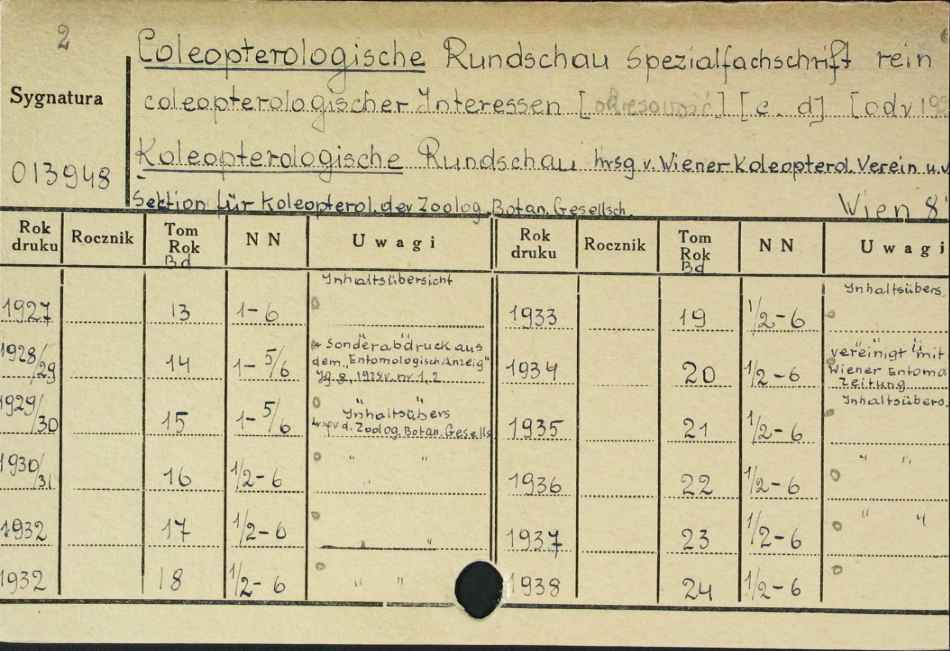 2
Coleopterologische Rundschau Spezialfachschrift rein
Sygnatura
coleopterologischer Interessen [okresowość] [c. d] [od v 19
013948
Koleopterologische Rundschau hrsg v. Wiener Koleopterol. Verein u.v
Sektion für Koleopterol. der Zoolog. Botan. Gesellsch. Wien 8°
Rok druku Rocznik Tom Rok Bd NN Uwagi Rok druku Rocznik Tom Rok Bd NN Uwagi
1927 13 1-6 Inhaltsübersicht 1933 19 1/2-6 Inhaltsübers
1928/29 14 1-5/6 Sonderabdruck aus dem "Entomologisch. Anzeig" Jg. 8, 1928v. nr 1, 2 1934 20 1/2-6 vereinigt mit Wiener Entomo Zeitung
1929/30 15 1-5/6 Inhaltsübers v. d. Zoolog. Botan. Gesells 1935 21 1/2-6 Inhaltsübers.
1930/31 16 1/2-6 " " 1936 22 1/2-6 " "
1932 17 1/2-6 " 1937 23 1/2-6 " "
1932 18 1/2-6 " " 1938 24 1/2-6